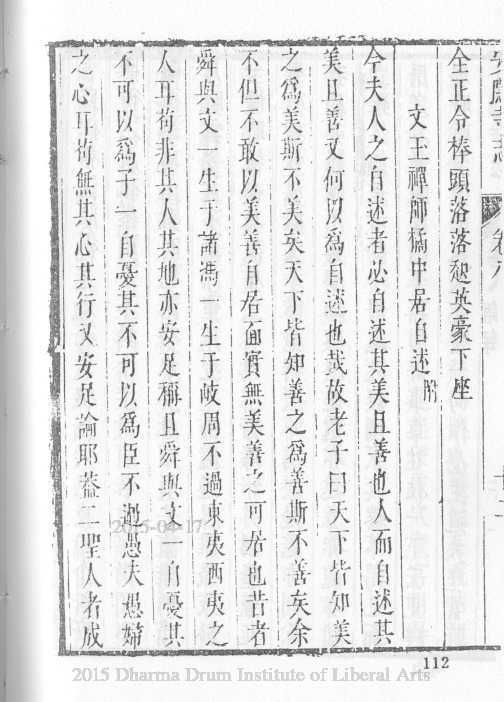 全正令棒頭落落起英豪下座
文王禪師橘中居自述附
今夫人之自述者必自述其美且善也人而自述其
美且善又何以為自述也哉故老子曰天下皆知美
之為美斯不美矣天下皆知善之為善斯不善矣余
不但不敢以美善自居面實無美善之可居也昔者
舜與文一生于諸馮一生于岐周不過東夷西夷之
人耳苟非其人其地亦安足稱且舜與文一自憂其
不可以為子一自憂其不可以為臣不過愚夫愚婦
之心耳苟無其心其行又安足論耶葢二聖人者成
112
2015-04-17
2015 Dharma Drum Institute of Liberal Arts